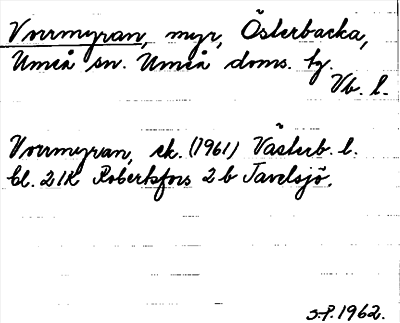 Vorrmyran, myr, Österbacka,
Umeå sn. Umeå doms. tg.
Vb. l.
Vorrmyran, ek. (1961) Västerb. l.
Bl. 21K Robertsfors 2b Tavelsjö.
S.P. 1962.